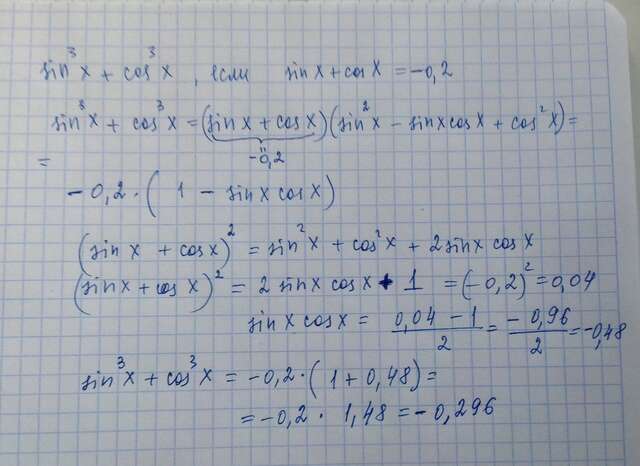 sin³x + cos³x , если sinx + cosx = -0,2
sin³x + cos³x = (sinx + cosx)(sin²x - sinxcosx + cos²x) =
-0,2
=
-0,2·( 1 - sinxcosx)
(sinx + cosx)² = sin²x + cos²x + 2sinxcosx
(sinx + cosx)² = 2sinxcosx + 1 = (-0,2)² = 0,04
sinxcosx = (0,04 - 1)/2 = -0,96/2 = -0,48
sin³x + cos³x = -0,2·(1 + 0,48) =
= -0,2 · 1,48 = -0,296